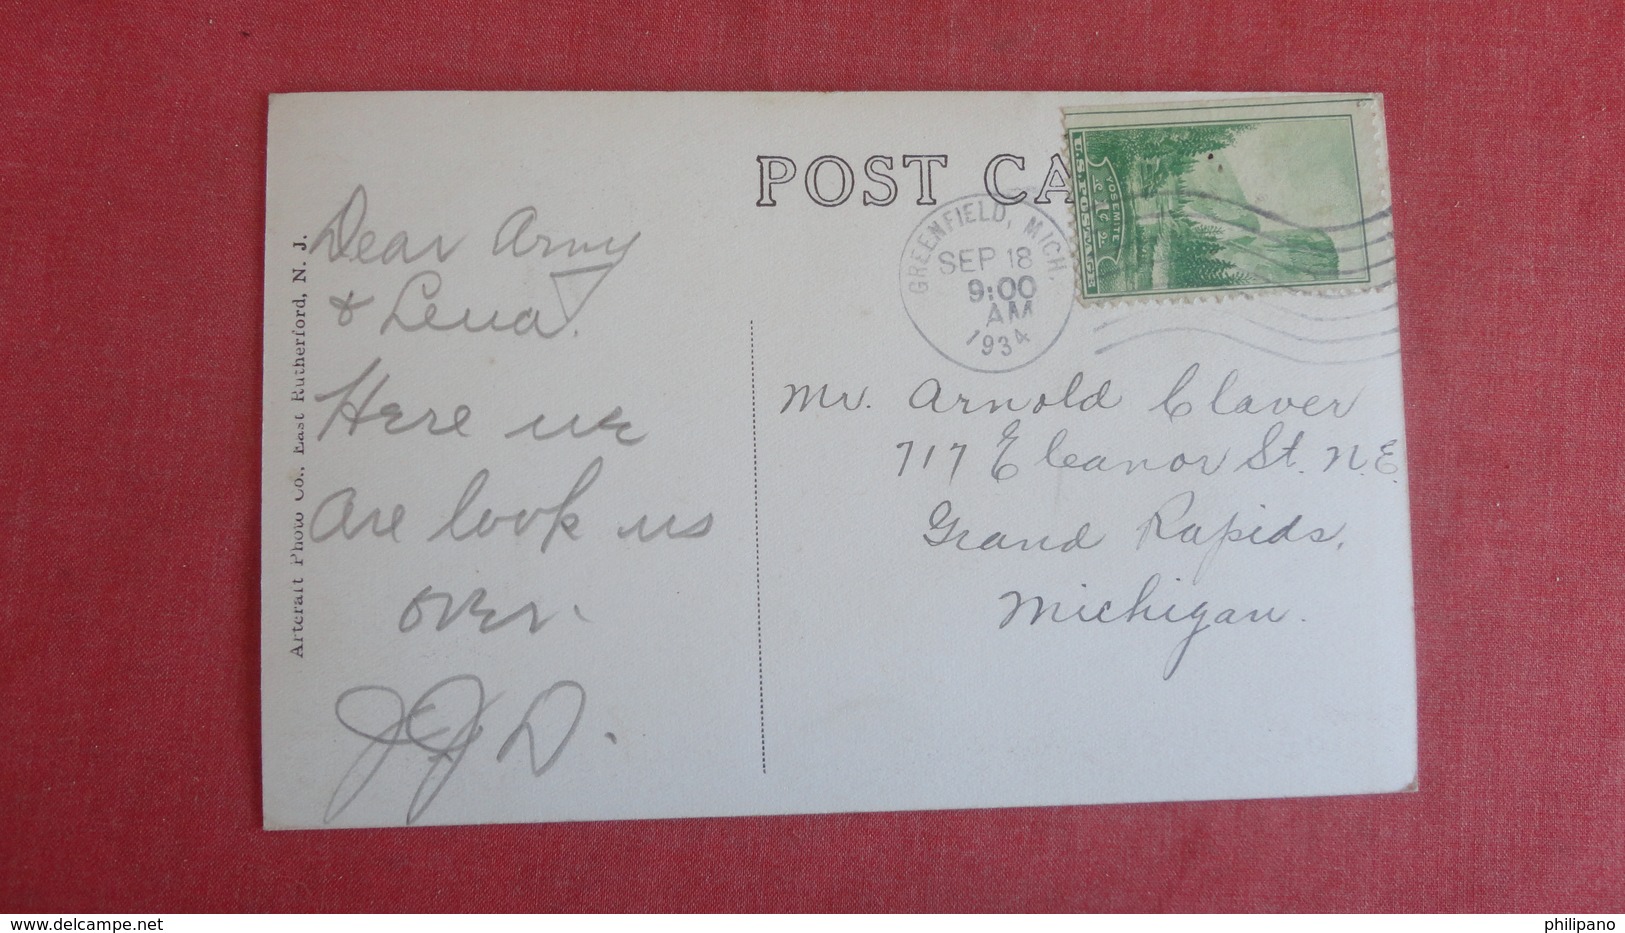 POST CA
Dear Arny
& Lena.
Here we
are look us
over.
J. J. D.
Artcraft Photo Co., East Rutherford, N. J.
GREENFIELD, MICH.
SEP 18
9:00
AM
1934
U.S. POSTAGE
YOSEMITE
1¢
Mr. Arnold Claver
717 Eleanor St. N.E
Grand Rapids,
Michigan.
delcampe.net
philipano